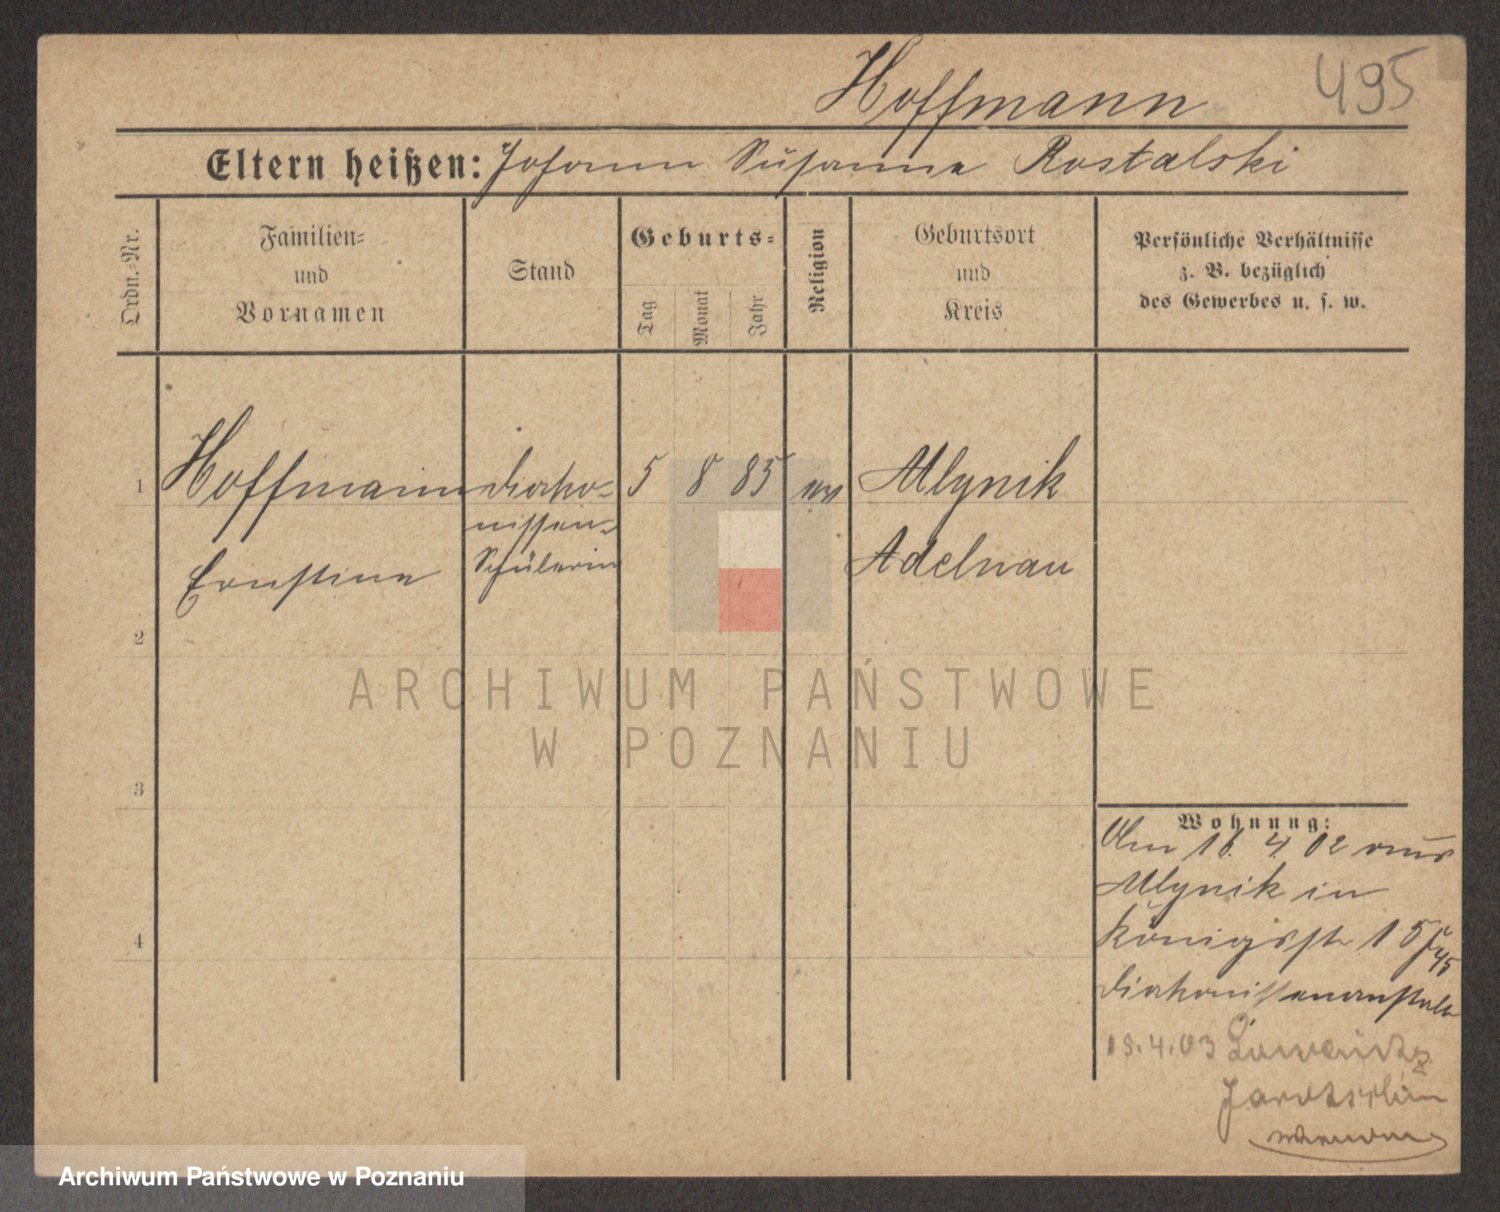 Hoffmann 495
Eltern heißen: Johann Susanna Rostalski
Ordn.-Nr.
Familien- und Vornamen
Stand
Geburts-
Tag Monat Jahr
Religion
Geburtsort und Kreis
Persönliche Verhältnisse
z. B. bezüglich
des Gewerbes u. s. w.
1 Hoffmann Diako- 5 8 85 ev Mlynik
nissen-
Ernstine Schülerin Adelnau
2
3
4
Wohnung:
Am 16. 4. 02 aus
Mlynik in
Königsstr 15
Diakonissenanstalt
15.4.03
ARCHIWUM PAŃSTWOWE
W POZNANIU
Archiwum Państwowe w Poznaniu